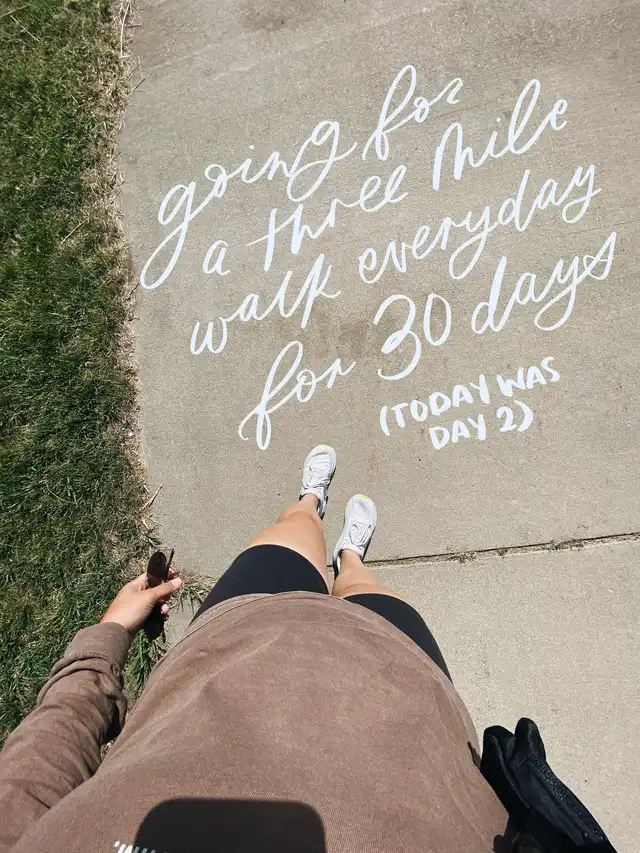 going for
a three mile
walk everyday
for 30 days
(TODAY WAS
DAY 2)